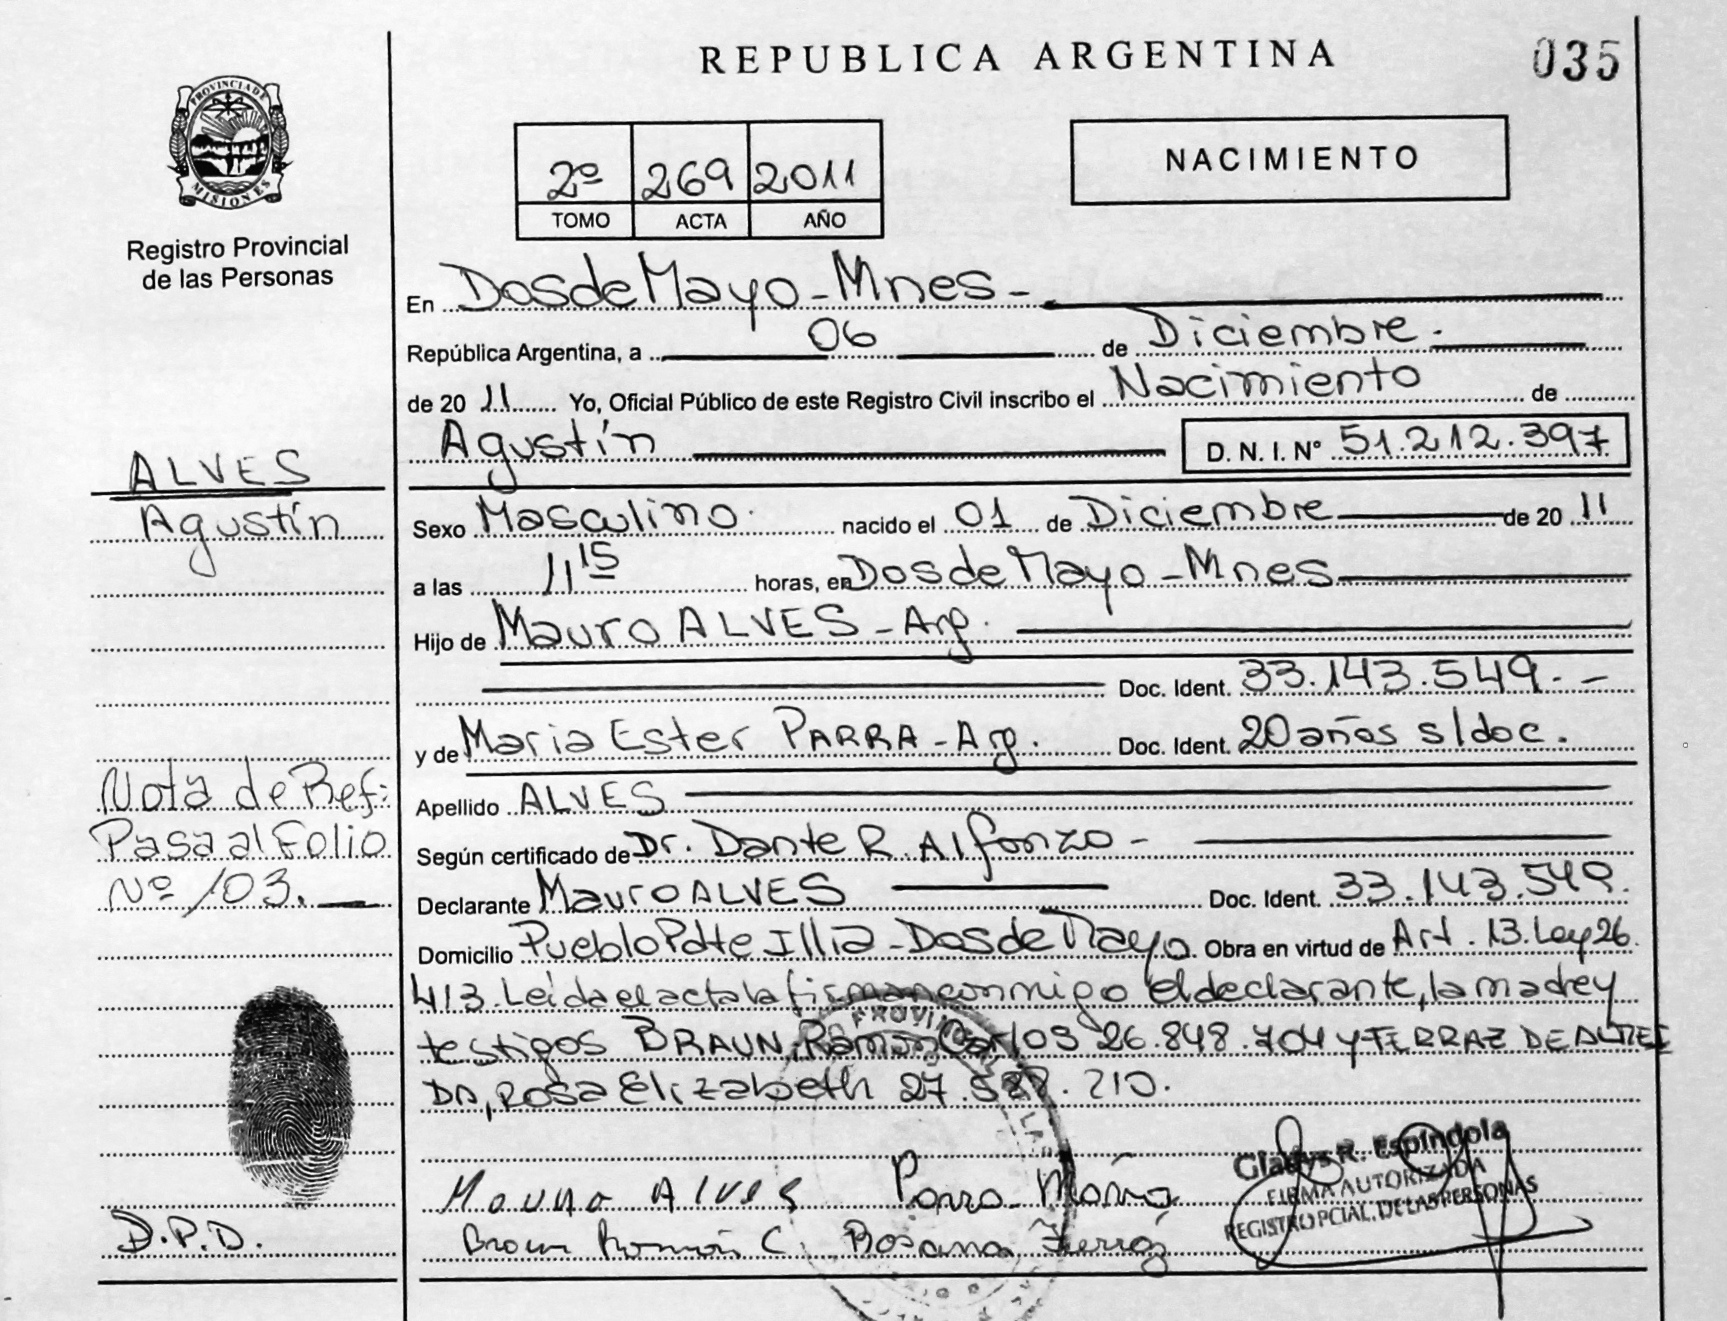 REPUBLICA ARGENTINA
035
PROVINCIA DE
MISIONES
Registro Provincial
de las Personas
2º 269 2011
TOMO ACTA AÑO
NACIMIENTO
En Dos de Mayo - Mnes -
República Argentina, a 06 de Diciembre.
de 20 11 Yo, Oficial Público de este Registro Civil inscribo el Nacimiento de
Agustín D. N. I. Nº 51.212.397
ALVES
Agustín
Sexo Masculino. nacido el 01 de Diciembre de 20 11
a las 11 15 horas, en Dos de Mayo - Mnes
Hijo de Mauro ALVES - Arg.
Doc. Ident. 33.143.549. -
y de Maria Ester PARRA - Arg. Doc. Ident. 20 años s/doc.
Apellido ALVES
Según certificado de Dr. Dante R. Alfonzo -
Declarante Mauro ALVES Doc. Ident. 33.143.549.
Domicilio Pueblo Pdte Illia - Dos de Mayo. Obra en virtud de Art. 13. Ley 26.
413. Leída el acta la firman conmigo el declarante, la madre y
testigos BRAUN, Ramón Carlos 26.848.704 y FERRAZ DE ALMEI
DA, Rosa Elizabeth 27.588.210.
Nota de Ref:
Pasa al Folio
Nº 103.
D.P.D.
Mauro ALVES Parra María
Braun Ramón C. Rosana Ferráz
Gladys R. Espíndola
FIRMA AUTORIZADA
REGISTRO PCIAL. DE LAS PERSONAS